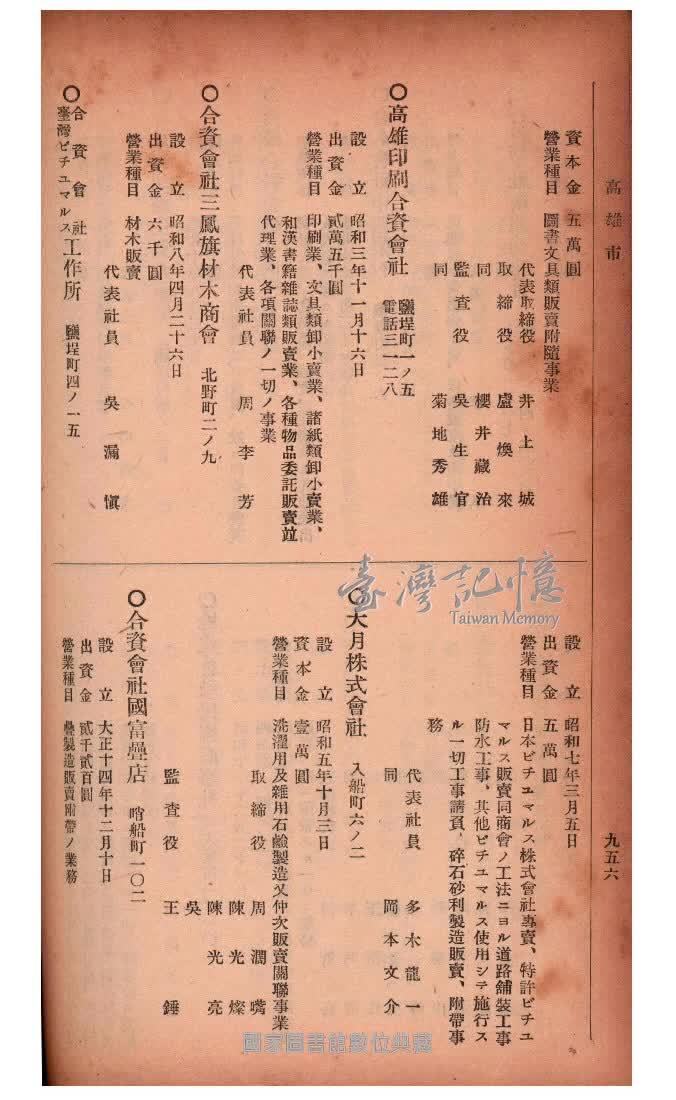 高雄市
九五六
資本金 五萬圓
營業種目 圖書文具類販賣附隨事業
代表取締役 井上城
取締役 盧煥來
同 櫻井藏治
監査役 吳生官
同 菊地秀雄
○高雄印刷合資會社 鹽埕町一ノ五
電話三一二八
設立 昭和三年十一月十六日
出資金 貳萬五千圓
營業種目 印刷業、文具類卸小賣業、諸紙類卸小賣業、
和漢書籍雜誌類販賣業、各種物品委託販賣竝
代理業、各項關聯ノ一切ノ事業
代表社員 周李芳
○合資會社三鳳旗材木商會 北野町二ノ九
設立 昭和八年四月二十六日
出資金 六千圓
營業種目 材木販賣
代表社員 吳漏愼
○合資會社
臺灣ビチユマルス工作所 鹽埕町四ノ一五
設立 昭和七年三月五日
出資金 五萬圓
營業種目 日本ビチユマルス株式會社專賣、特許ビチユ
マルス販賣同商會ノ工法ニヨル道路舖裝工事
防水工事、其他ビチユマルス使用シテ施行ス
ル一切工事請負、碎石砂利製造販賣、附帶事
務
代表社員 多木龍一
同 岡本文介
○大月株式會社 入船町六ノ二
設立 昭和五年十月三日
資本金 壹萬圓
營業種目 洗濯用及雜用石鹼製造又仲次販賣關聯事業
取締役 周潤嘴
陳光燦
陳光亮
吳
監査役 王錘
○合資會社國富疊店 哨船町一〇二
設立 大正十四年十二月十日
出資金 貳千貳百圓
營業種目 疊製造販賣附帶ノ業務
臺灣記憶
Taiwan Memory
國家圖書館數位典藏